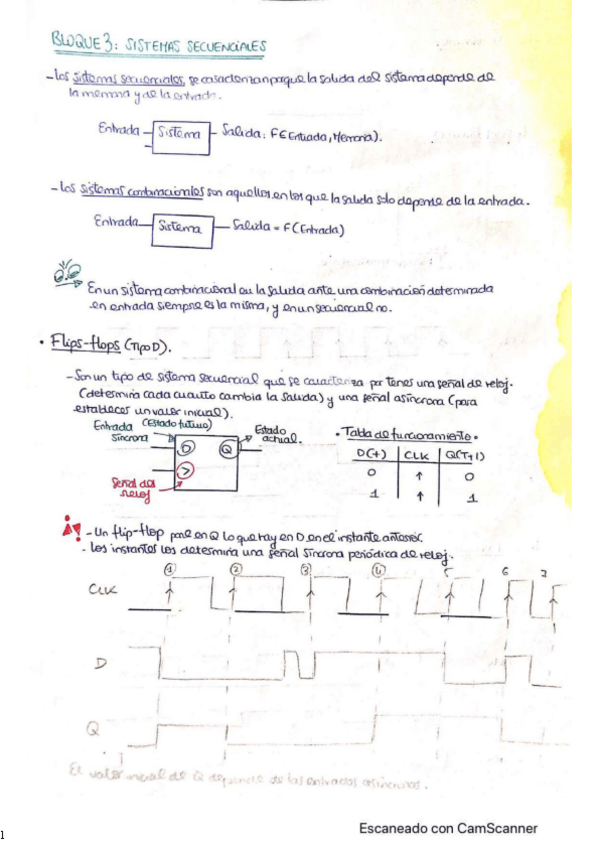 BLOQUE 3: SISTEMAS SECUENCIALES
- Los sistemas secuenciales, se caracterizan porque la salida del sistema depende de
la memoria y de la entrada.
Entrada Sistema Salida: F(Entrada, Memoria).
- Los sistemas combinacionales son aquellos en los que la salida solo depende de la entrada.
Entrada Sistema Salida = F(Entrada)
En un sistema combinacional la salida ante una combinación determinada
en entrada siempre es la misma, y en un secuencial no.
• Flips-flops (Tipo D).
- Son un tipo de sistema secuencial que se caracteriza por tener una señal de reloj.
(determina cada cuanto cambia la salida) y una señal asíncrona (para
establecer un valor inicial).
Entrada (Estado futuro)
síncrona
D Q
Estado
actual.
Señal del
reloj
• Tabla de funcionamiento •
D(t) CLK Q(T+1)
0 ↑ 0
1 ↑ 1
- Un flip-flop pone en Q lo que hay en D en el instante anterior.
- Los instantes los determina una señal síncrona periódica de reloj.
1 2 3 4 5 6 7
CLK
D
Q
El valor inicial de Q depende de las entradas asíncronas.
1
Escaneado con CamScanner